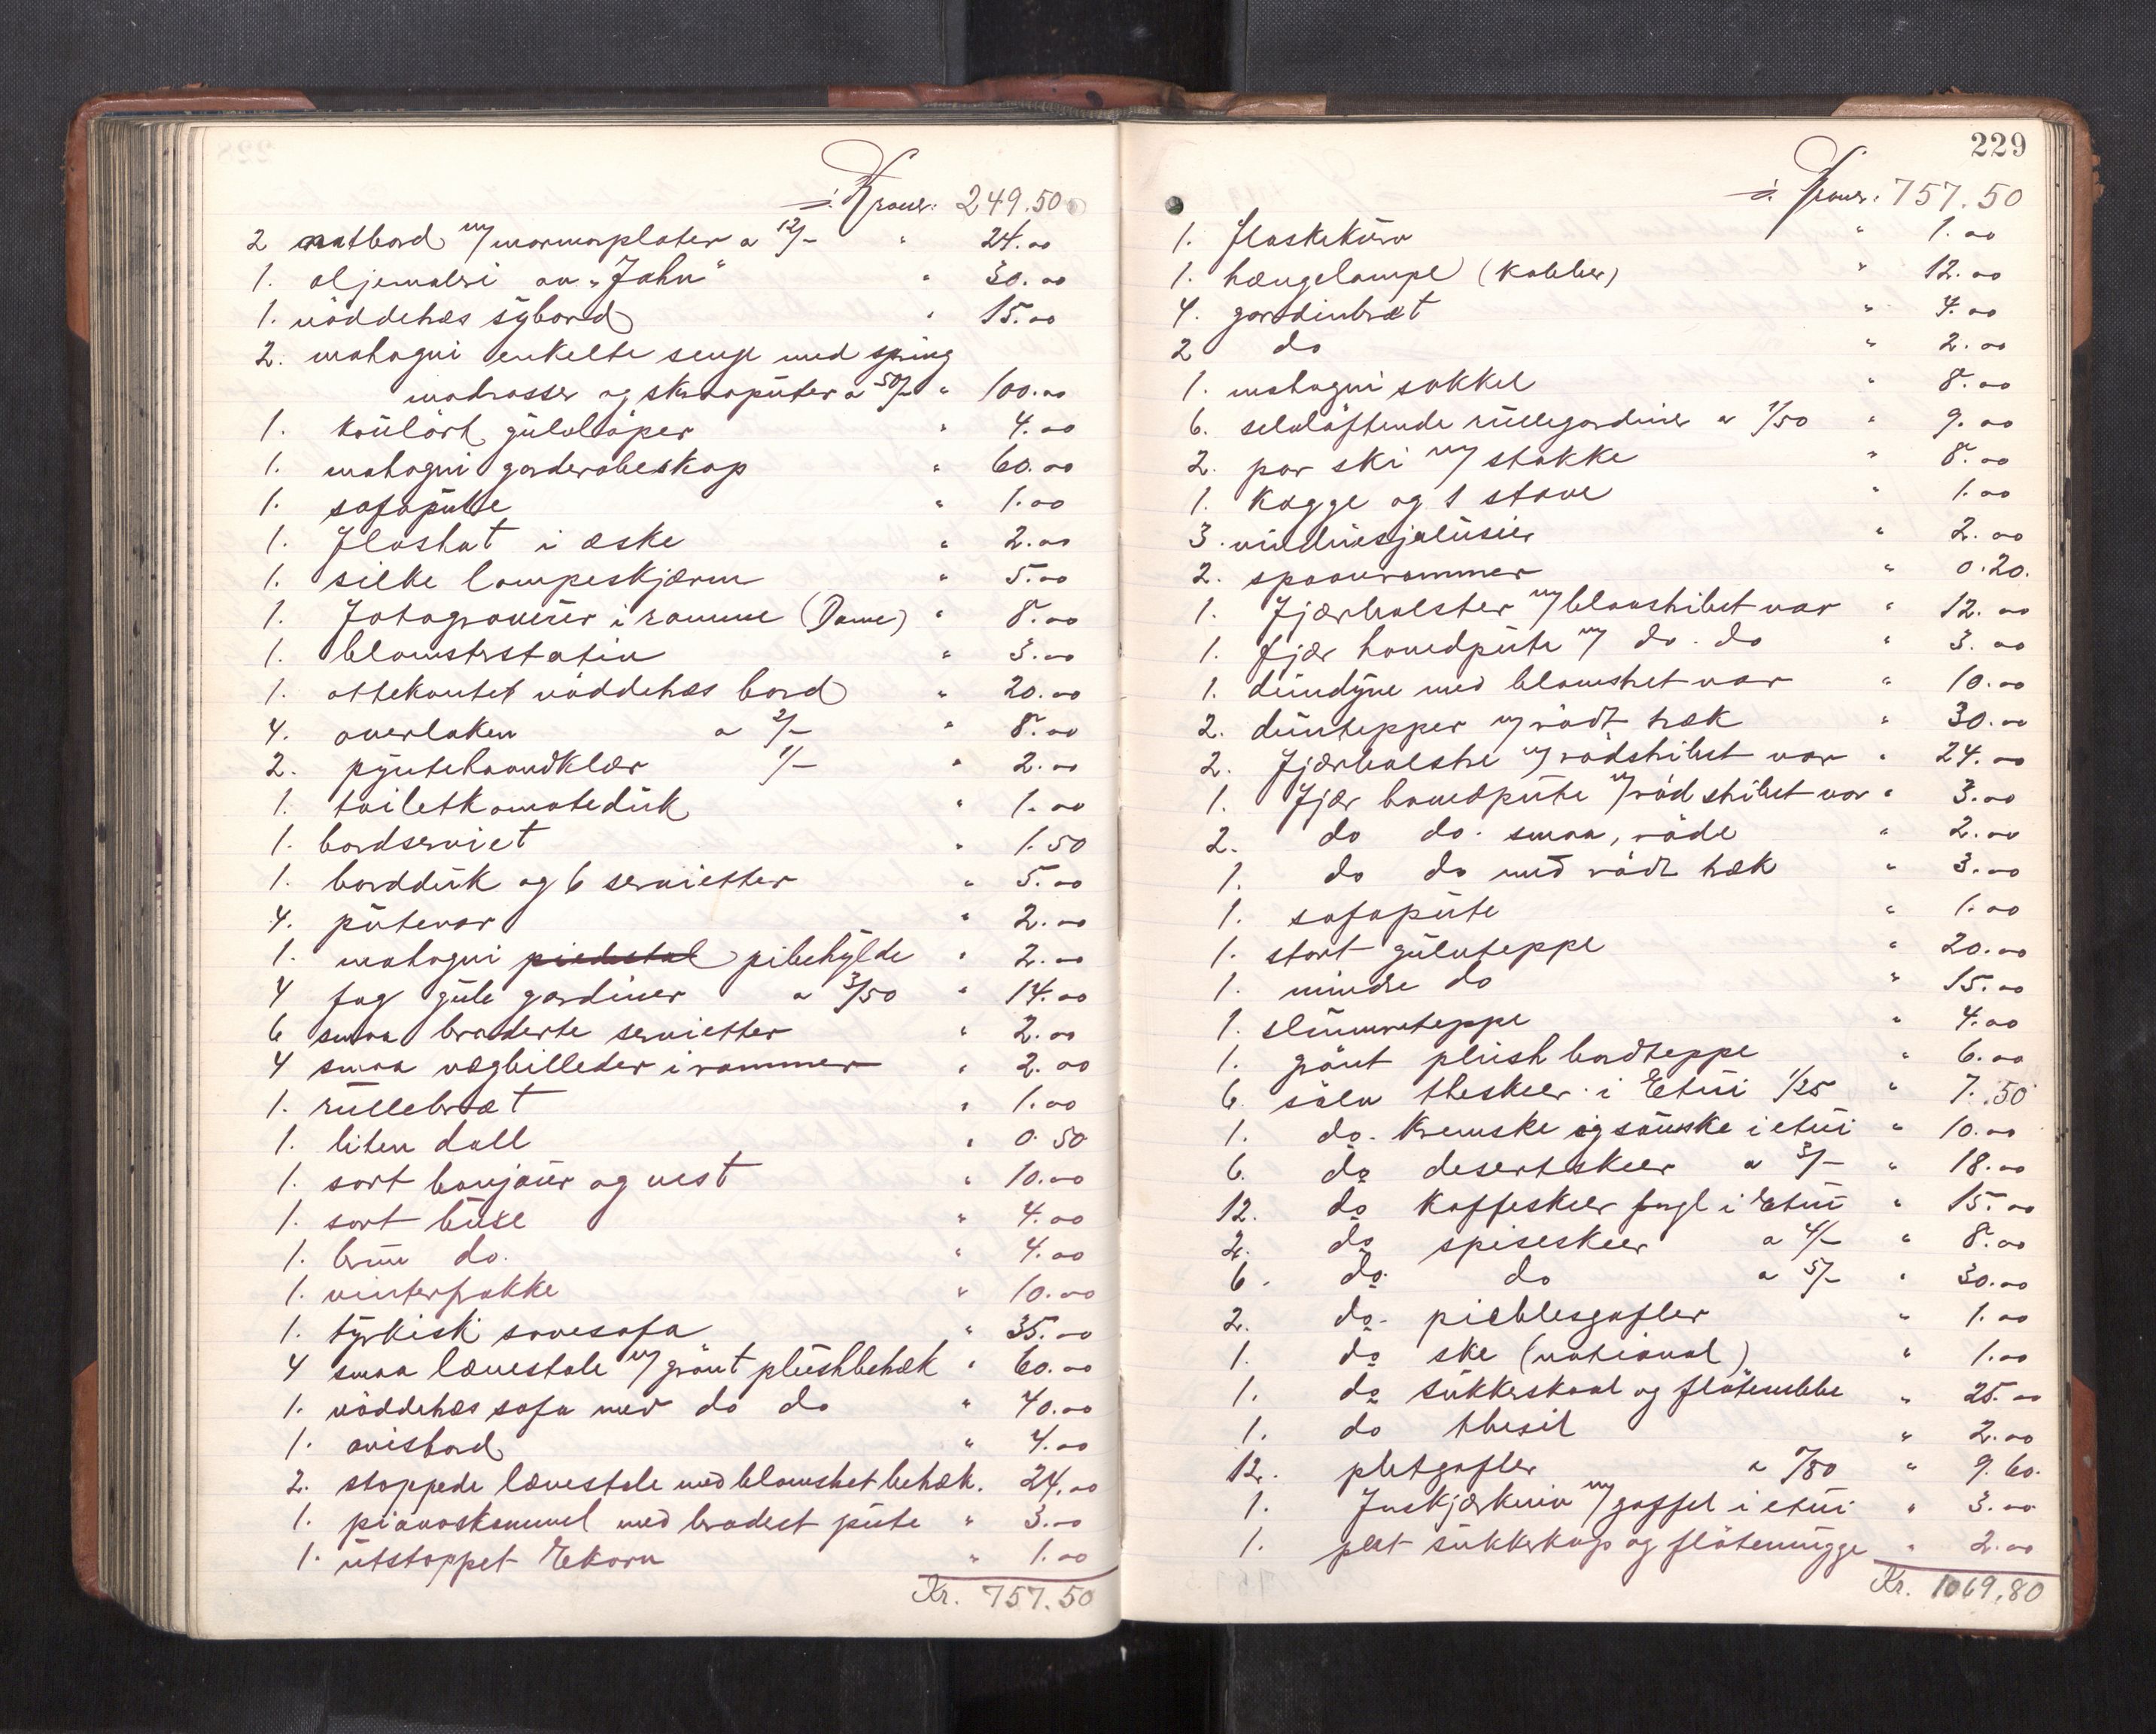 ÷ Kroner: 249.50
2 natbord m/ marmorplater a 12/- " 24.00
1. oljemaleri av "Jahn" " 30.00
1. nöddetræs sybord " 15.00
2. mahogni enkelte senge med spring
madrasser og skraaputer a 50/- " 100.00
1. kulört gulvlöper " 4.00
1. mahogni garderobeskap " 60.00
1. sofapute " 1.00
1. Floshat i æske " 2.00
1. silke lampeskjærm " 5.00
1. Fotogravur i ramme (Dame) " 8.00
1. blomsterstativ " 3.00
1. ottekantet nöddetræs bord " 20.00
4. overlaken a 2/- " 8.00
2. pyntehaandklær 1/- " 2.00
1. toiletkomotedük " 1.00
1. bordserviet " 1.50
1. borddük og 6 servietter " 5.00
4. putevar " 2.00
1. mahogni piedestal pibehylde " 2.00
4 fag gule gardiner a 3/50 " 14.00
6 smaa broderte servietter " 2.00
4 smaa vægbilleder i rammer " 2.00
1. rullebræt " 1.00
1. liten dall " 0.50
1. sort bonjour og vest " 10.00
1. sort buxe " 4.00
1. brun do. " 4.00
1. vinterfrakke " 10.00
1. tyrkisk sovesofa " 35.00
4 smaa lænestole m/ grönt plüshbetræk " 60.00
1. nöddetræs sofa med do do " 40.00
1. avisbord " 4.00
2. stoppede lænestole med blomstret betræk. 24.00
1. pianoskammel med brodert pute " 3.00
1. utstoppet Ekorn " 1.00
Kr. 757.50
229
÷ Kroner: 757.50
1. Flaskekurv " 1.00
1. hængelampe (Kobber) " 12.00
4. gardinbræt " 4.00
2 do " 2.00
1. mahogni sokkel " 8.00
6. selvlöftende rullegardiner a 1/50 " 9.00
2. par ski m/ stokke " 8.00
1. Kagge og 1 stave " 1.00
3. vindussjalusier " 2.00
2. spaanrammer " 0.20.
1. Fjærbolster m/ blaastribet var " 12.00
1. fjær hovedpute m/ do. do " 3.00
1. dundyne med blomstret var " 10.00
2. duntepper m/ rödt træk " 30.00
2. Fjærbolstre m/ rödstribet var " 24.00
1. Fjær hovedpute m/ rödstribet var " 3.00
2. do do. smaa, röde " 2.00
1. do do med rödt træk " 3.00
1. sofapute " 1.00
1. stort gulvteppe " 20.00
1. mindre do " 15.00
1. slumreteppe " 4.00
1. grönt plüsh bordteppe " 6.00
6. sölv theskeer i Etui 1/25 " 7.50
1. do. Kremske og sauske i etui " 10.00
6. do desertskeer a 3/- " 18.00
12. do kaffeskeer forgl i Etui " 15.00
2. do spiseskeer a 4/- " 8.00
6. do do a 5/- " 30.00
2. do. picklesgafler " 1.00
1. do ske (national) " 1.00
1. do sukkerskaal og flötemubbe " 25.00
1. do thesil " 2.00
12. pletgafler a 0/80 " 9.60.
1. Forskjærkniv m/ gaffel i etui " 3.00
1. plet sukkerkop og flötemugge " 2.00
Kr. 1069,80